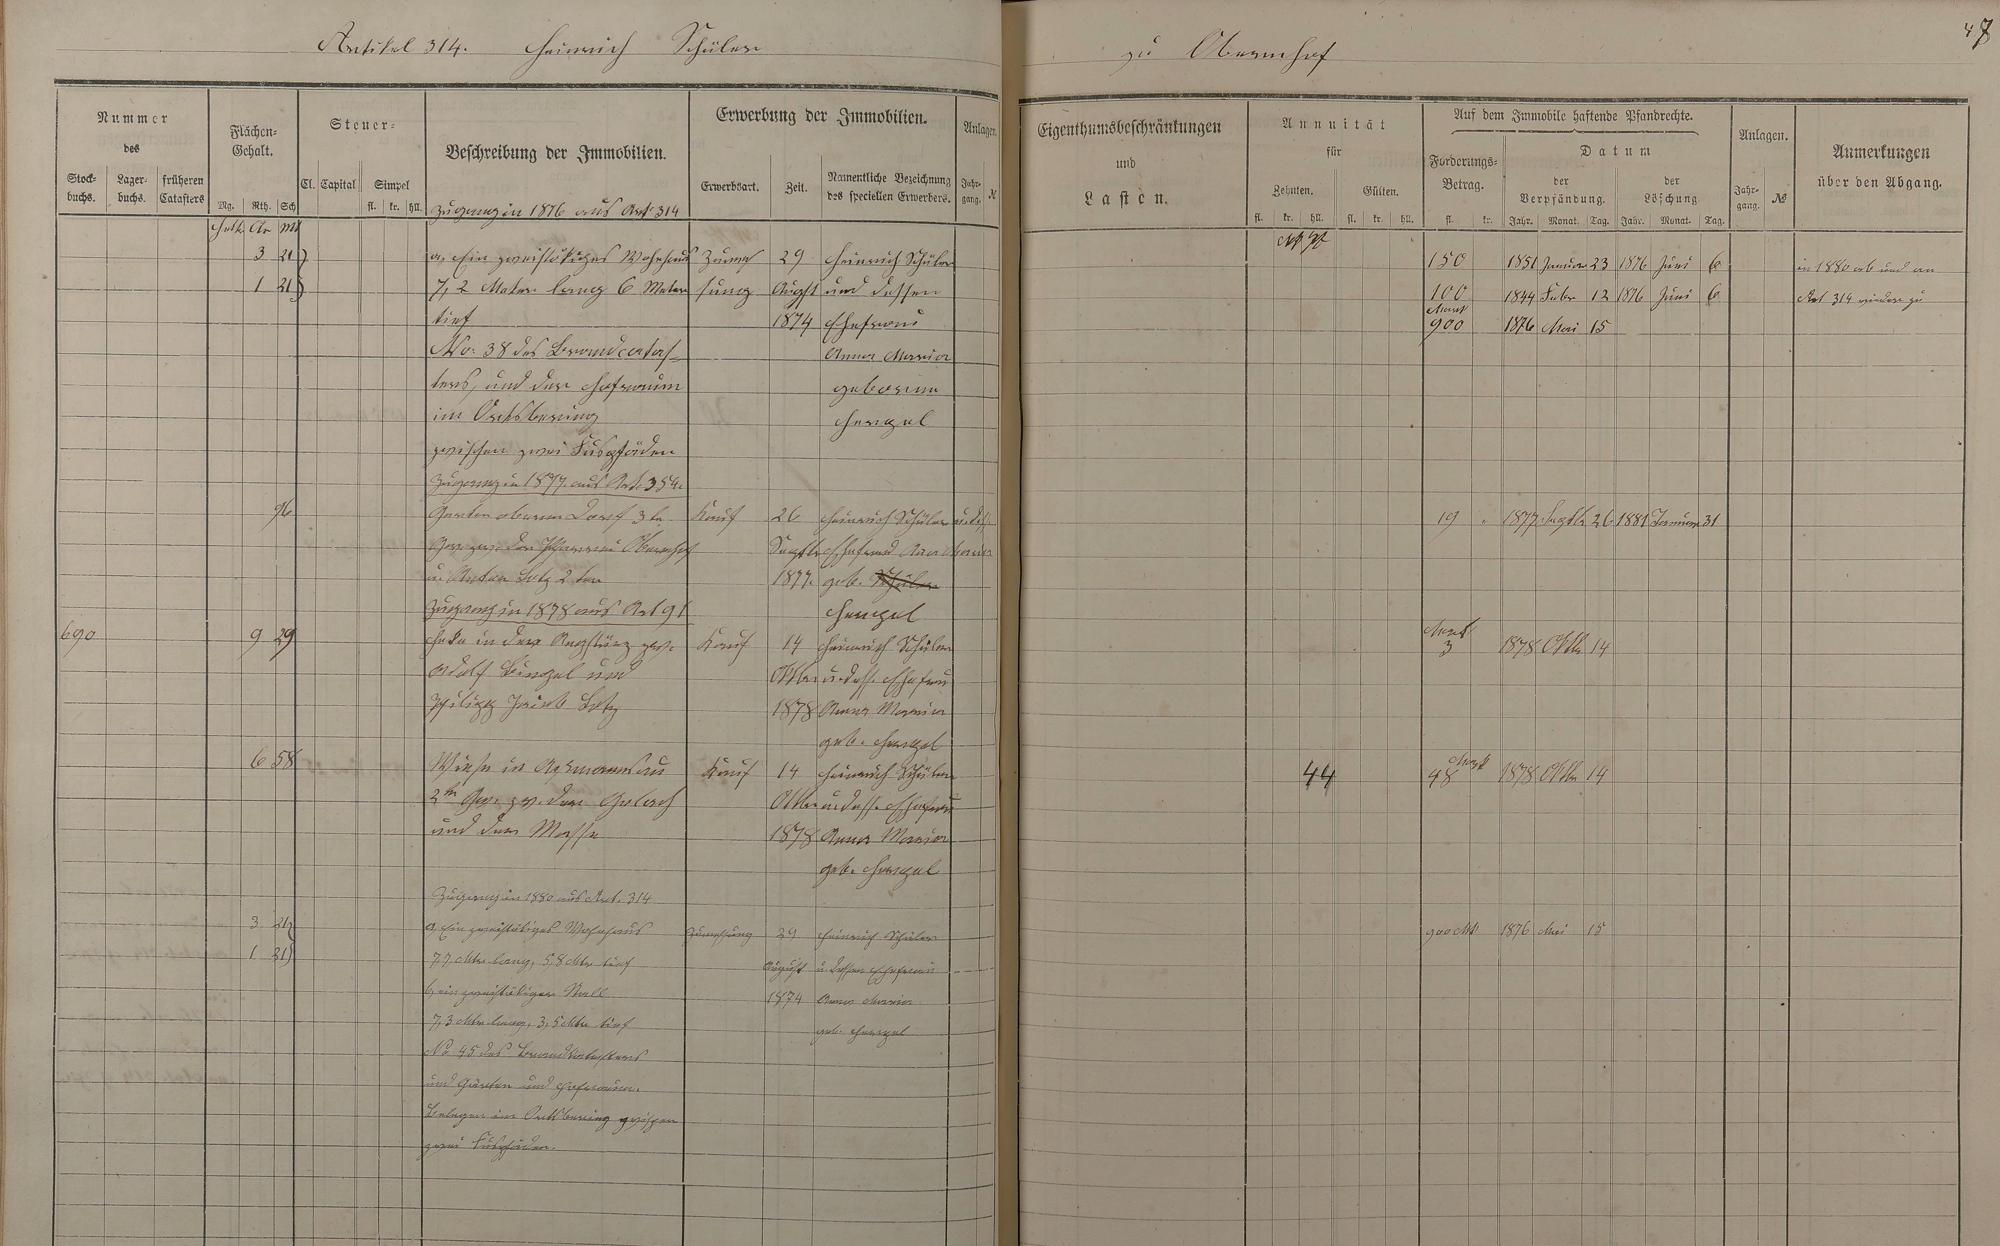 47
Artikel 314. Heinrich Schüler zu Obernhof
Nummer
des
Stock-
buchs.
Lager-
buchs.
früheren
Catasters
Flächen-
Gehalt.
Mg. Rth. Sch
Steuer-
Cl. Capital Simpel
fl. kr. hll.
Beschreibung der Immobilien.
Erwerbung der Immobilien.
Erwerbsart. Zeit.
Namentliche Bezeichnung
des speciellen Erwerbers.
Anlagen.
Jahr-
gang. №
Eigenthumsbeschränkungen
und
Lasten.
Annuität
für
Zehnten. Gülten.
fl. kr. hll. fl. kr. hll.
Auf dem Immobile haftende Pfandrechte.
Forderungs-
Betrag.
fl. kr.
Datum
der
Verpfändung.
Jahr. Monat. Tag.
der
Löschung
Jahr. Monat. Tag.
Anlagen.
Jahr-
gang. №
Anmerkungen
über den Abgang.
Zugang in 1876 aus Art. 314
Hekt. Ar M
3 21 a, Ein zweistökiges Wohnhaus Zumes 29 Heinrich Schüler 150 1851 Januar 23 1876 Juni 6 in 1880 ab und an
1 21 7,2 Meter lang 6 Meter sung Augst und dessen 100 1844 Febr 12 1876 Juni 6 Art 314 wieder zu
tief 1874 Ehefrau Mark 900 1876 Mai 15
No: 38 des Brandcatas- Anna Maria
ters, und der Hofraum geborene
im Ortsbering Hengel
zwischen zwei Fuspfäden
Zugang in 1877 aus Art. 354.
96 Garten oberm Dorf 3 te Kauf 26 Heinrich Schüler u. dess 19 1877 Septbr 26 1881 Januar 31
Gew. zw. der Obernhof Septbr Ehefrau Anna Maria
u. Anton Lotz 2 ter 1877. geb. Schüler
Zugang in 1878 aus Art 91 Hengel
690 9 29 Heke in der zw. Kauf 14 Heinrich Schüler Mark 3 1878 Oktbr 14
Adolf Bingel und Oktbr u. dess. Ehefrau
Philipp Jacob Lotz 1878 Anna Maria
geb. Hengel
6 58 Wiese in Kauf 14 Heinrich Schüler 44 Mark 48 1878 Oktbr 14
2te Gew. zw. der Gelbach Oktbr u. dess. Ehefrau
und dem 1878 Anna Maria
geb. Hengel
Zugang in 1880 aus Art. 314
3 21 a, Ein zweistökiges Wohnhaus Zumessung 29 Heinrich Schüler 900 Mk 1876 Mai 15
1 21 7,7 Mtr lang, 5,8 Mtr tief August u. dessen Ehefrau
b, ein zweistökiger Stall 1874 Anna Maria
7,3 Mtr lang, 3,5 Mtr tief geb. Hengel
No 45 des Brandkatasters
und Garten und Hofraum.
Belegen im Ortsbering zwischen
zwei Fuspfäden.